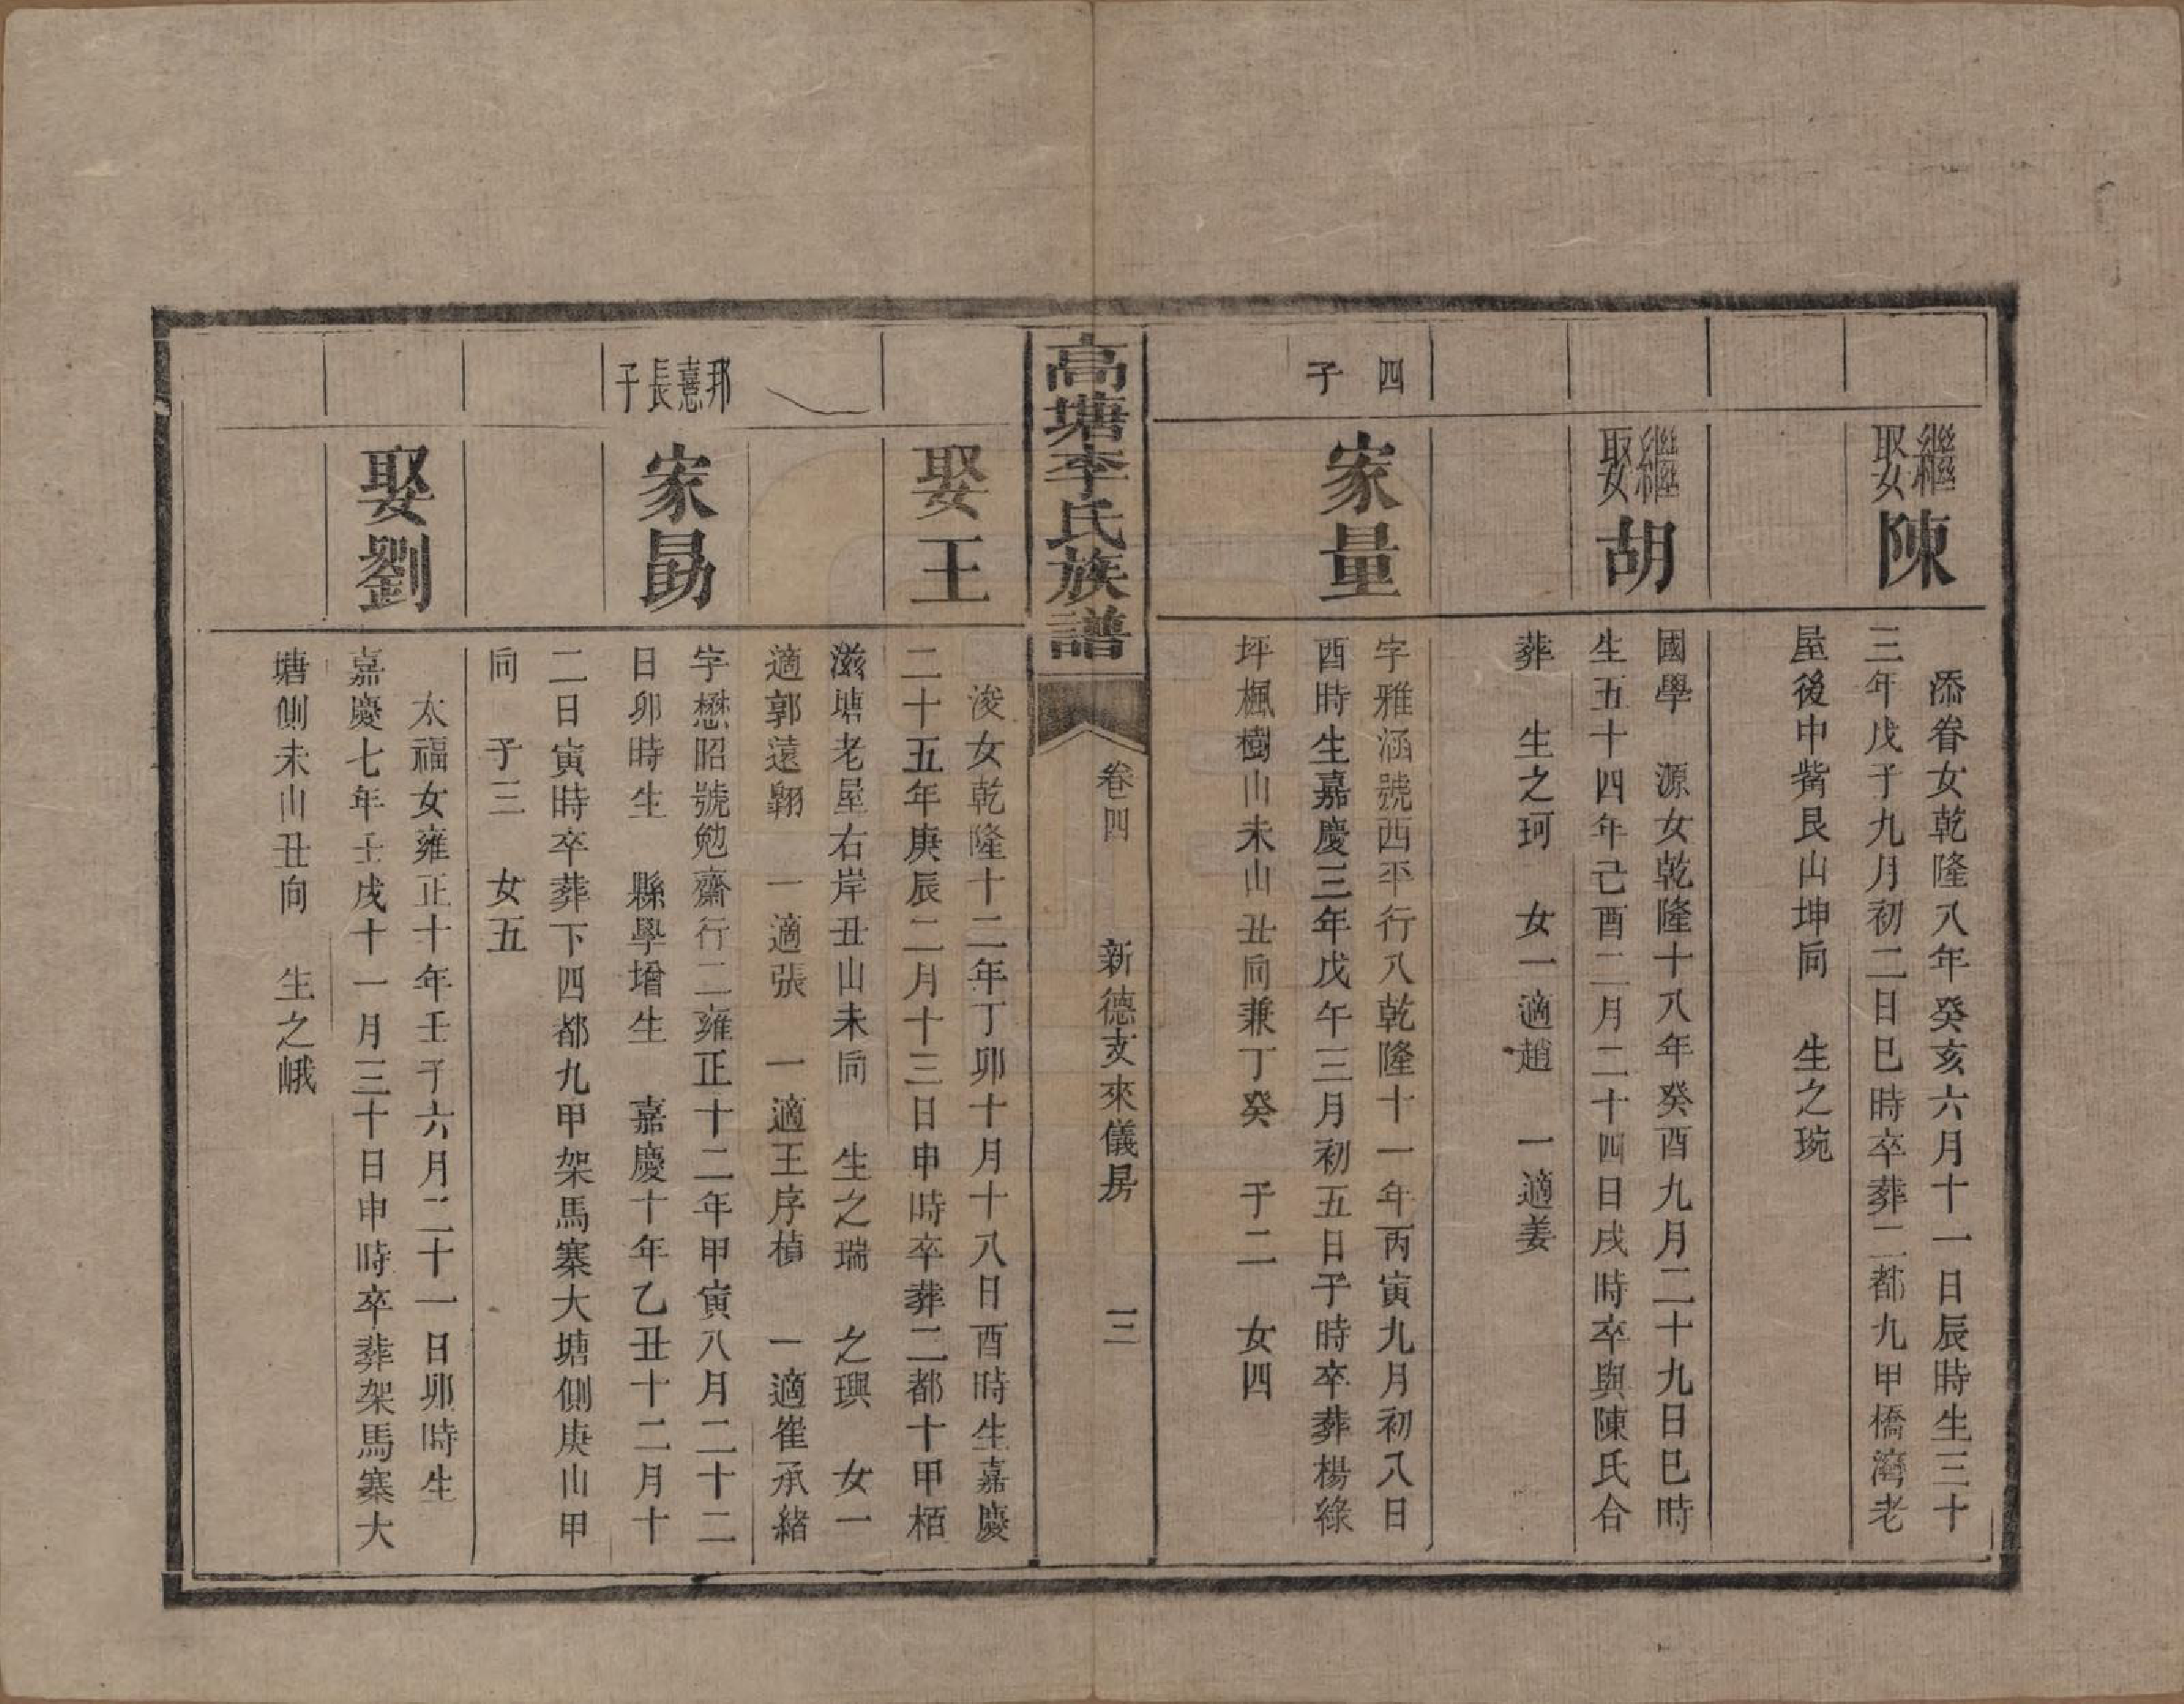 繼娶陳
添眷女乾隆八年癸亥六月十一日辰時生三十
三年戊子九月初二日巳時卒葬二都九甲橋灣老
屋後中嘴艮山坤向　生之琬
繼娶胡
國學　源女乾隆十八年癸酉九月二十九日巳時
生五十四年己酉二月二十四日戌時卒與陳氏合
葬　生之珂　女一適趙　一適姜
四子
家量
字雅涵號西平行八乾隆十一年丙寅九月初八日
酉時生嘉慶三年戊午三月初五日子時卒葬楊祿
坪楓樹山未山丑向兼丁癸　子二　女四
高塘李氏族譜
卷四　新德支來儀房　三
娶王
浚女乾隆十二年丁卯十月十八日酉時生嘉慶
二十五年庚辰二月十三日申時卒葬二都十甲栢
滋塘老屋右岸丑山未向　生之瑞　之璵　女一
適郭遠翺　一適張　一適王序楨　一適崔承緒
邦憙長子
家勗
字懋昭號勉齋行二雍正十二年甲寅八月二十二
日卯時生　縣學增生　嘉慶十年乙丑十二月十
二日寅時卒葬下四都九甲架馬寨大塘側庚山甲
向　子三　女五
娶劉
太福女雍正十年壬子六月二十一日卯時生
嘉慶七年壬戌十一月三十日申時卒葬架馬寨大
塘側未山丑向　生之峨